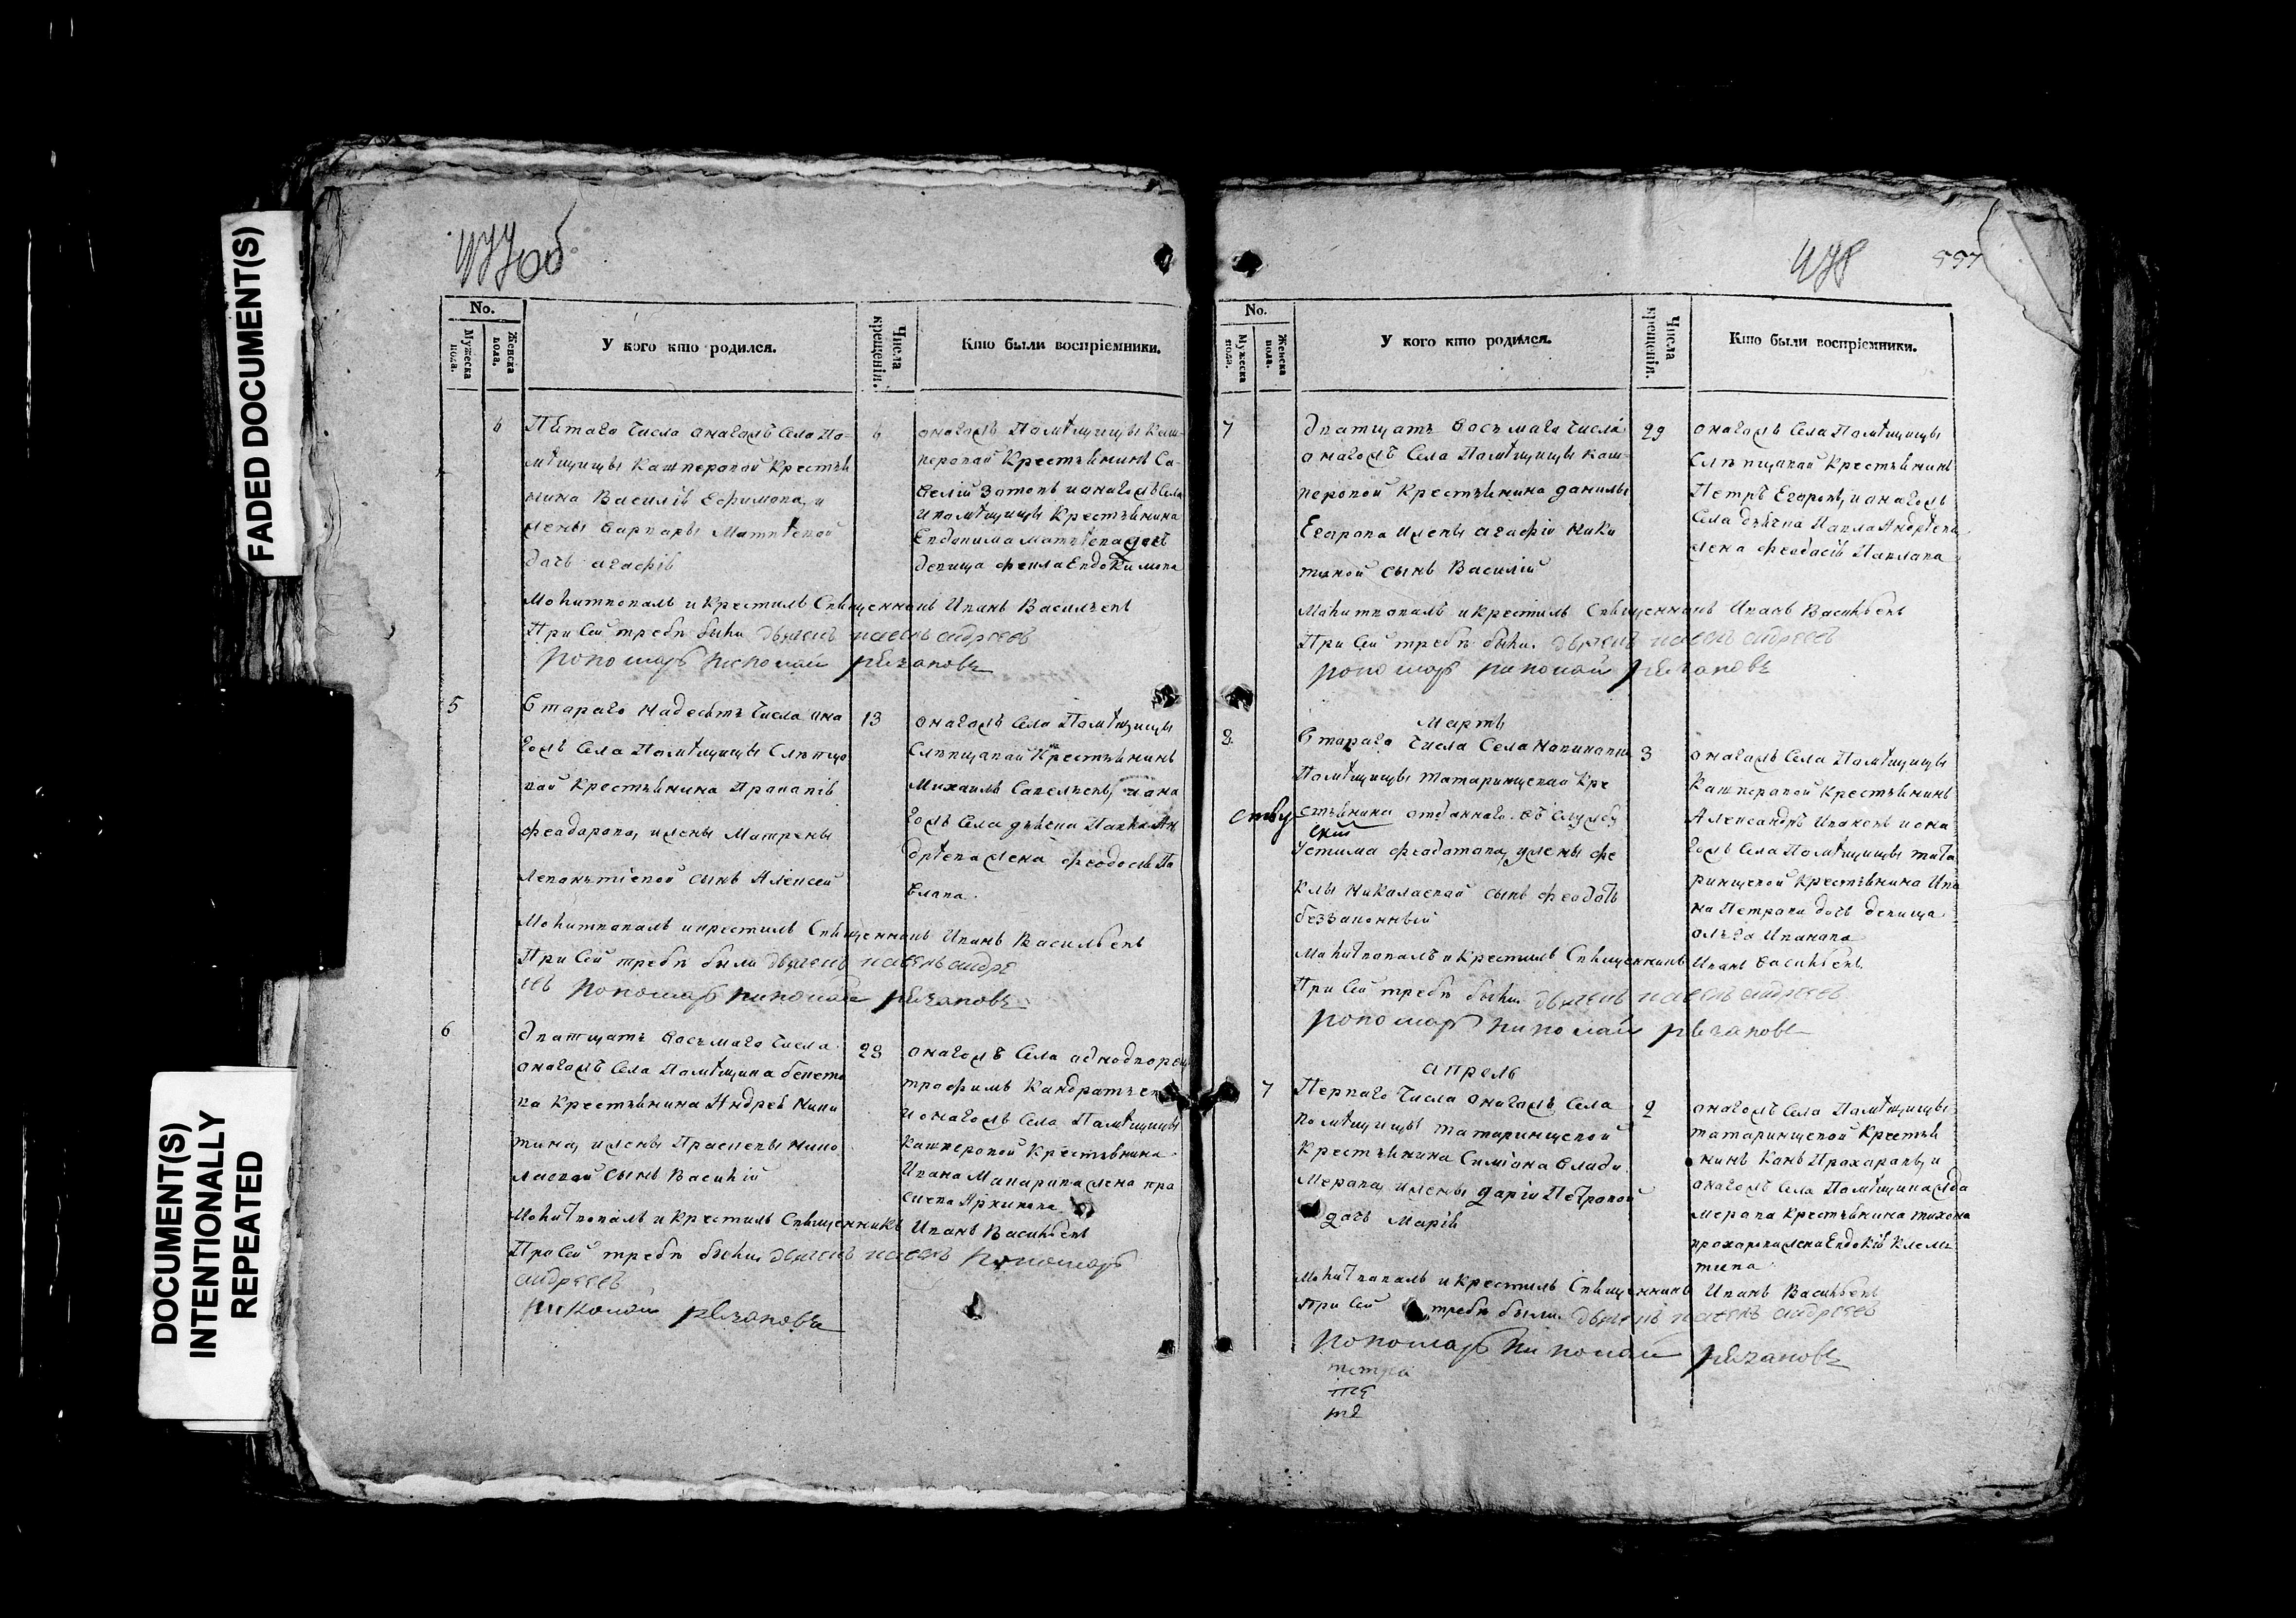 FADED DOCUMENT(S)
DOCUMENT(S)
INTENTIONALLY
REPEATED
477об
No.
Мужеска пола.
Женска пола.
У кого кто родился.
Числа крещенія.
Кто были воспріемники.
6
Пятаго числа онагожъ села По-
мѣщицы Кашперовой крестья
нина Василія Ефимова, и
жены Варвары Матвѣевой
дочь Агафія
6
онагожъ Помѣщицы Каш-
перовой Крестьянинъ Са-
велій Зотовъ и онагожъ села
и помѣщицы Крестьянина
Евдокима Матвѣева дочь
девица Фекла Евдокимова
Молитвовалъ и крестилъ Священникъ Иванъ Васильевъ
При сей требѣ были дьячекъ Павелъ Андреевъ
пономарь Николай Рязановъ
5
Втараго надесять числа она
гожъ села Помѣщицы Слѣпцо
вой Крестьянина Пракапія
Феодорова, и жены Матрены
Леванътіевой сынъ Алексей
13
онагожъ села Помѣщицы
Слѣпцовой Крестьянинъ
Михаилъ Савельевъ, и она
гожъ села дьячка Павла Ан
дрѣева жена Феодосія Па
влова.
Молитвовалъ и крестилъ Священникъ Иванъ Васильевъ
При сей требѣ были дьячекъ Павелъ Андре
евъ пономарь Николай Рязановъ
6
Дватцать восьмаго числа
онагожъ села Помѣщика Бекета
ва Крестьянина Андрея Ники
тина, и жены Прасковы Нико
лаевой сынъ Василій
28
онагожъ села аднодворец
Трофимъ Кандратьев
и онагожъ села Памѣщицы
Кашперовой Крестьянина
Ивана Макарова жена Пра
сковья Архипова
Молитвовалъ и крестилъ Священникъ Иванъ Васильевъ
При сей требѣ были дьячекъ Павелъ пономарь
Андреевъ
Николай Рязановъ
478
557
No.
Мужеска пола.
Женска пола.
У кого кто родился.
Числа крещенія.
Кто были воспріемники.
7
Дватцать восьмаго числа
онагожъ села Помѣщицы Каш-
перовой Крестьянина Данилы
Егорова и жены Агафіи Ники
тиной сынъ Василій
29
онагожъ села Памѣщицы
Слѣпцовой Крестьянинъ
Петръ Егоровъ, и онагожъ
села дьячка Павла Андрѣева
жена Феодосія Павлова
Молитвовалъ и крестилъ Священникъ Иванъ Васильевъ
При сей требѣ были дьячекъ Павелъ Андреевъ
пономарь Николай Рязановъ
Мартъ
8
Втараго числа села
Памѣщицы Татаринцевой Кре
стьянина отданнаго въ службу
Устима Феодотова, у жены Фе
клы Николаевой сынъ Феодотъ
беззаконный
3
онагожъ села Памѣщицы
Кашперовой Крестьянинъ
Александръ Ивановъ и она
гожъ села Помѣщицы Тата
ринцевой Крестьянина Ива
на Петрова дочь девица
Ольга Иванова
Молитвовалъ и крестилъ Священникъ Иванъ Васильевъ.
При сей требѣ были дьячекъ Павелъ Андреевъ
пономарь Николай Рязановъ
Апрель
7
Перваго числа онагожъ села
Помѣщицы Татаринцевой
Крестьянина Симіона Влади
мерова, и жены Даріи Петровой
дочь Марія
2
онагожъ села Памѣщицы
Татаринцевой Крестья
нинъ Прахаровъ, и
онагожъ села Памѣщика Ада
мерова Крестьянина Тихона
Прохорова жена Евдокія Клемъ
тева
Молитвовалъ и крестилъ Священникъ Иванъ Васильевъ
При сей требѣ были дьячекъ Павелъ Андреевъ
пономарь Николай Рязановъ